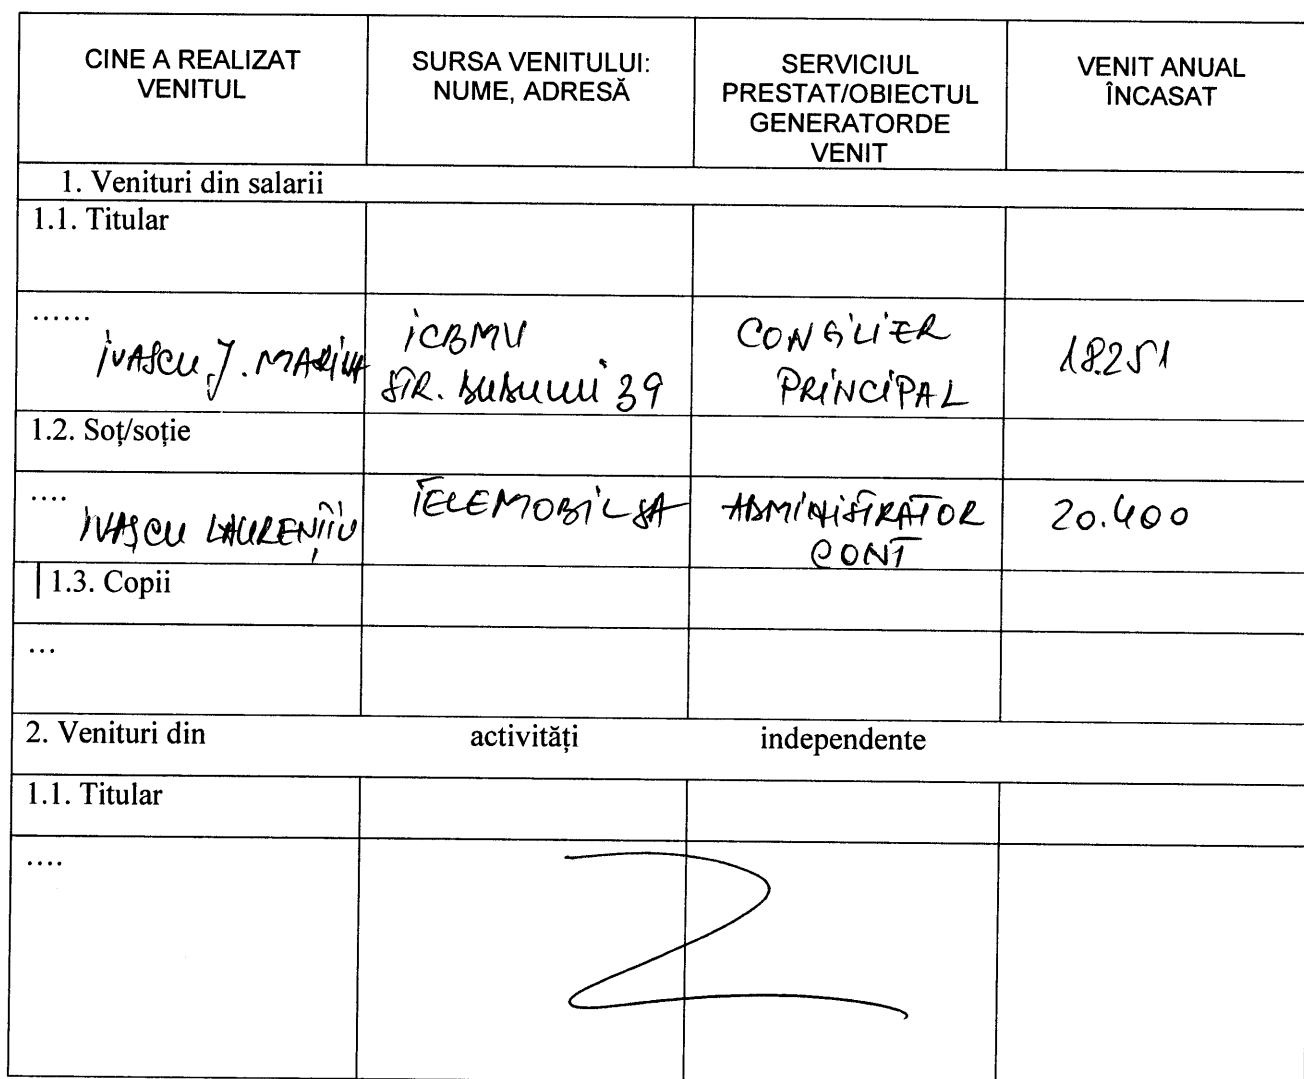 CINE A REALIZAT
VENITUL
SURSA VENITULUI:
NUME, ADRESĂ
SERVICIUL
PRESTAT/OBIECTUL
GENERATORDE
VENIT
VENIT ANUAL
ÎNCASAT
1. Venituri din salarii
1.1. Titular
......
IVASCU J. MARINA
ICBMV
STR. 39
CONSILIER
PRINCIPAL
18.251
1.2. Soț/soție
....
IVAȘCU LAURENȚIU
TELEMOBIL SA
ADMINISTRATOR
CONT
20.400
1.3. Copii
...
2. Venituri din activități independente
1.1. Titular
....